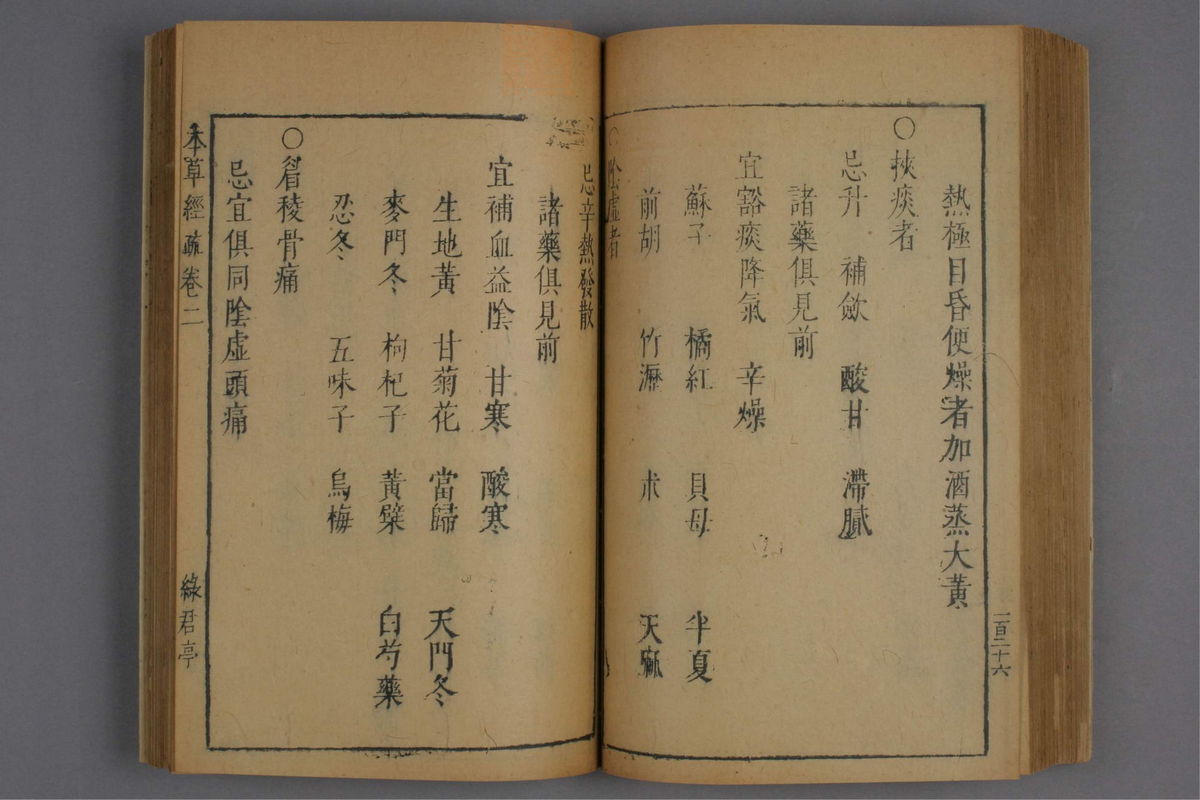 熱極目昏便燥者加酒蒸大黃
○挾痰者
忌升 補斂 酸甘 滯膩
諸藥俱見前
宜豁痰降氣 辛燥
蘇子 橘紅 貝母 半夏
前胡 竹瀝 朮 天麻
○陰虛者
忌辛熱發散
諸藥俱見前
宜補血益陰 甘寒 酸寒
生地黃 甘菊花 當歸 天門冬
麥門冬 枸杞子 黃檗 白芍藥
忍冬 五味子 烏梅
○眉稜骨痛
忌宜俱同陰虛頭痛
本草經疏卷二
綠君亭
一百二十六